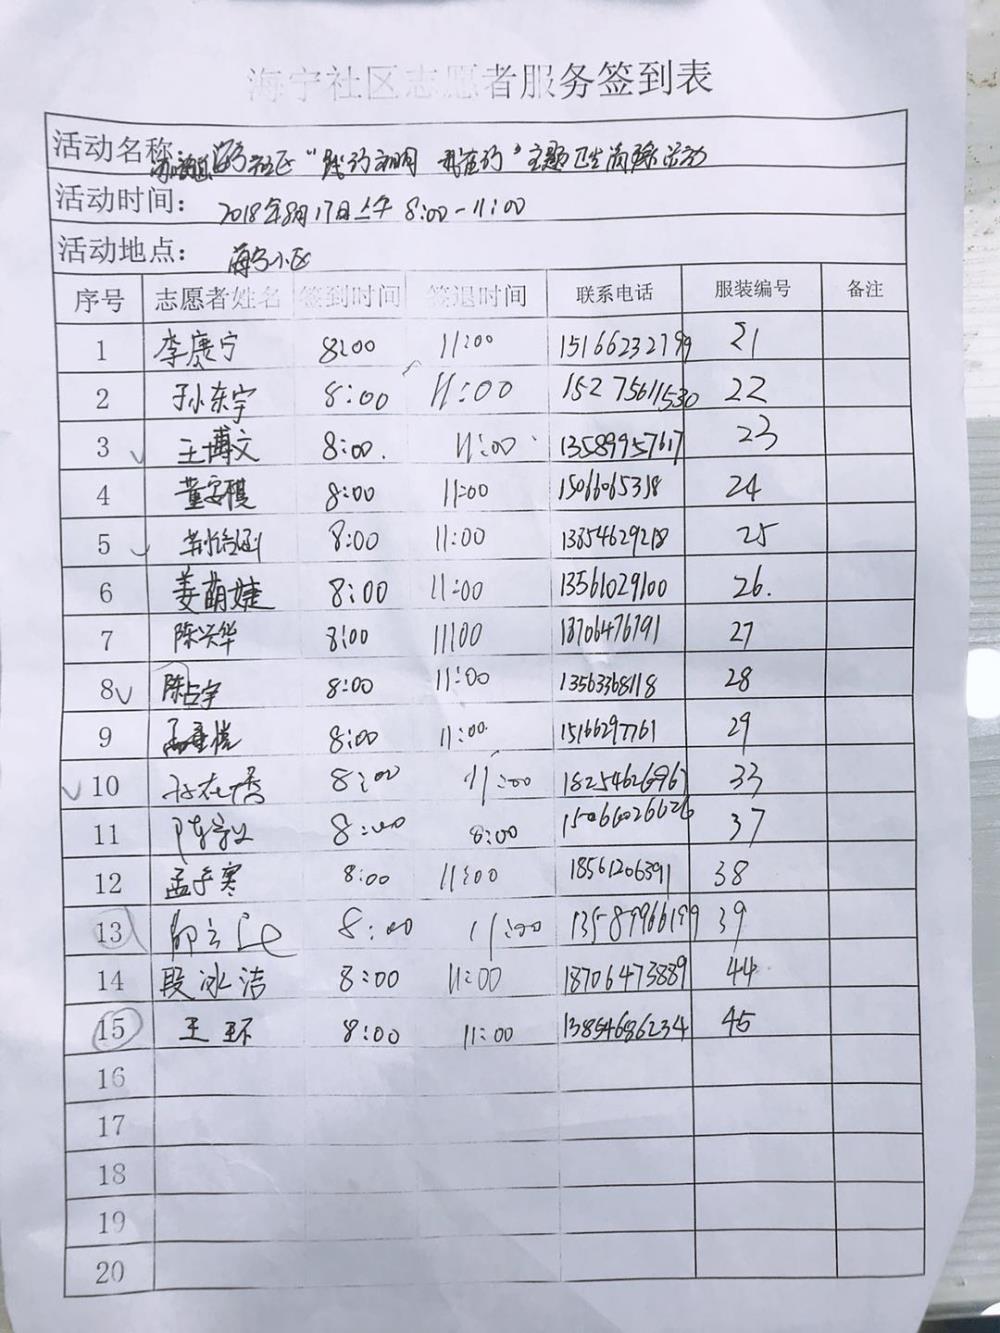 海宁社区志愿者服务签到表
活动名称: 海宁社区“践行文明 我在行”主题卫生清除活动
活动时间: 2018年8月17日上午 8:00-11:00
活动地点: 海宁小区
序号 志愿者姓名 签到时间 签退时间 联系电话 服装编号 备注
1 李赓宁 8:00 11:00 15166232799 21
2 孙东宇 8:00 11:00 15275611530 22
3 王博文 8:00 11:00 13589957617 23
4 董安祺 8:00 11:00 1506065318 24
5 8:00 11:00 13354629218 25
6 姜萌婕 8:00 11:00 13561029100 26.
7 陈兴华 8:00 11:00 18706476791 27
8 陈占宇 8:00 11:00 13563368118 28
9 8:00 11:00 15166297761 29
10 8:00 11:00 18254626967 33
11 8:00 8:00 15066026626 37
12 孟子寒 8:00 11:00 18561206391 38
13 8:00 11:00 13589966199 39
14 段冰洁 8:00 11:00 18706473889 44
15 王环 8:00 11:00 13854686234 45
16
17
18
19
20